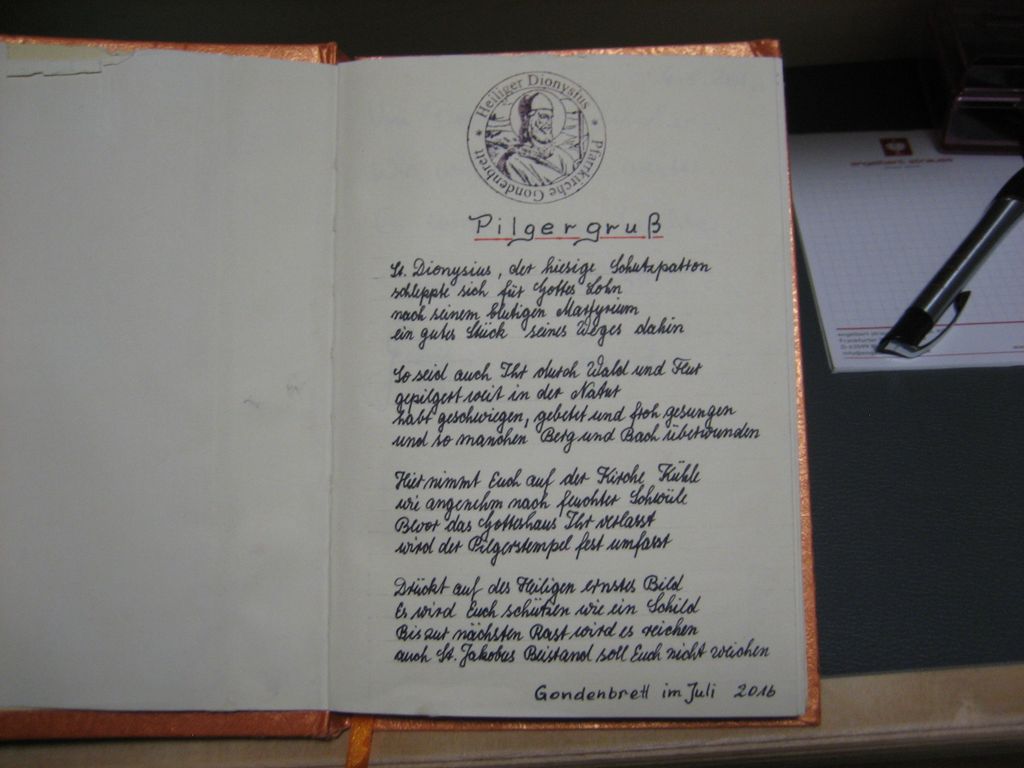 Heiliger Dionysius
Pfarrkirche Gondenbrett
Pilgergruß
St. Dionysius, der hiesige Schutzpatron
schleppte sich für Gottes Lohn
nach seinem blutigen Martyrium
ein gutes Stück seines Weges dahin
So seid auch Ihr durch Wald und Flur
gepilgert weit in der Natur
habt geschwiegen, gebetet und froh gesungen
und so manchen Berg und Bach überwunden
Hier nimmt Euch auf der Kirche Kühle
wie angenehm nach feuchter Schwüle
Bevor das Gotteshaus Ihr verlasst
wird der Pilgerstempel fest umfasst
Drückt auf des Heiligen ernstes Bild
Es wird Euch schützen wie ein Schild
Bis zur nächsten Rast wird es reichen
auch St. Jakobus Beistand soll Euch nicht weichen
Gondenbrett im Juli 2016
engelbert strauss
engelbert strauss
Frankfurter